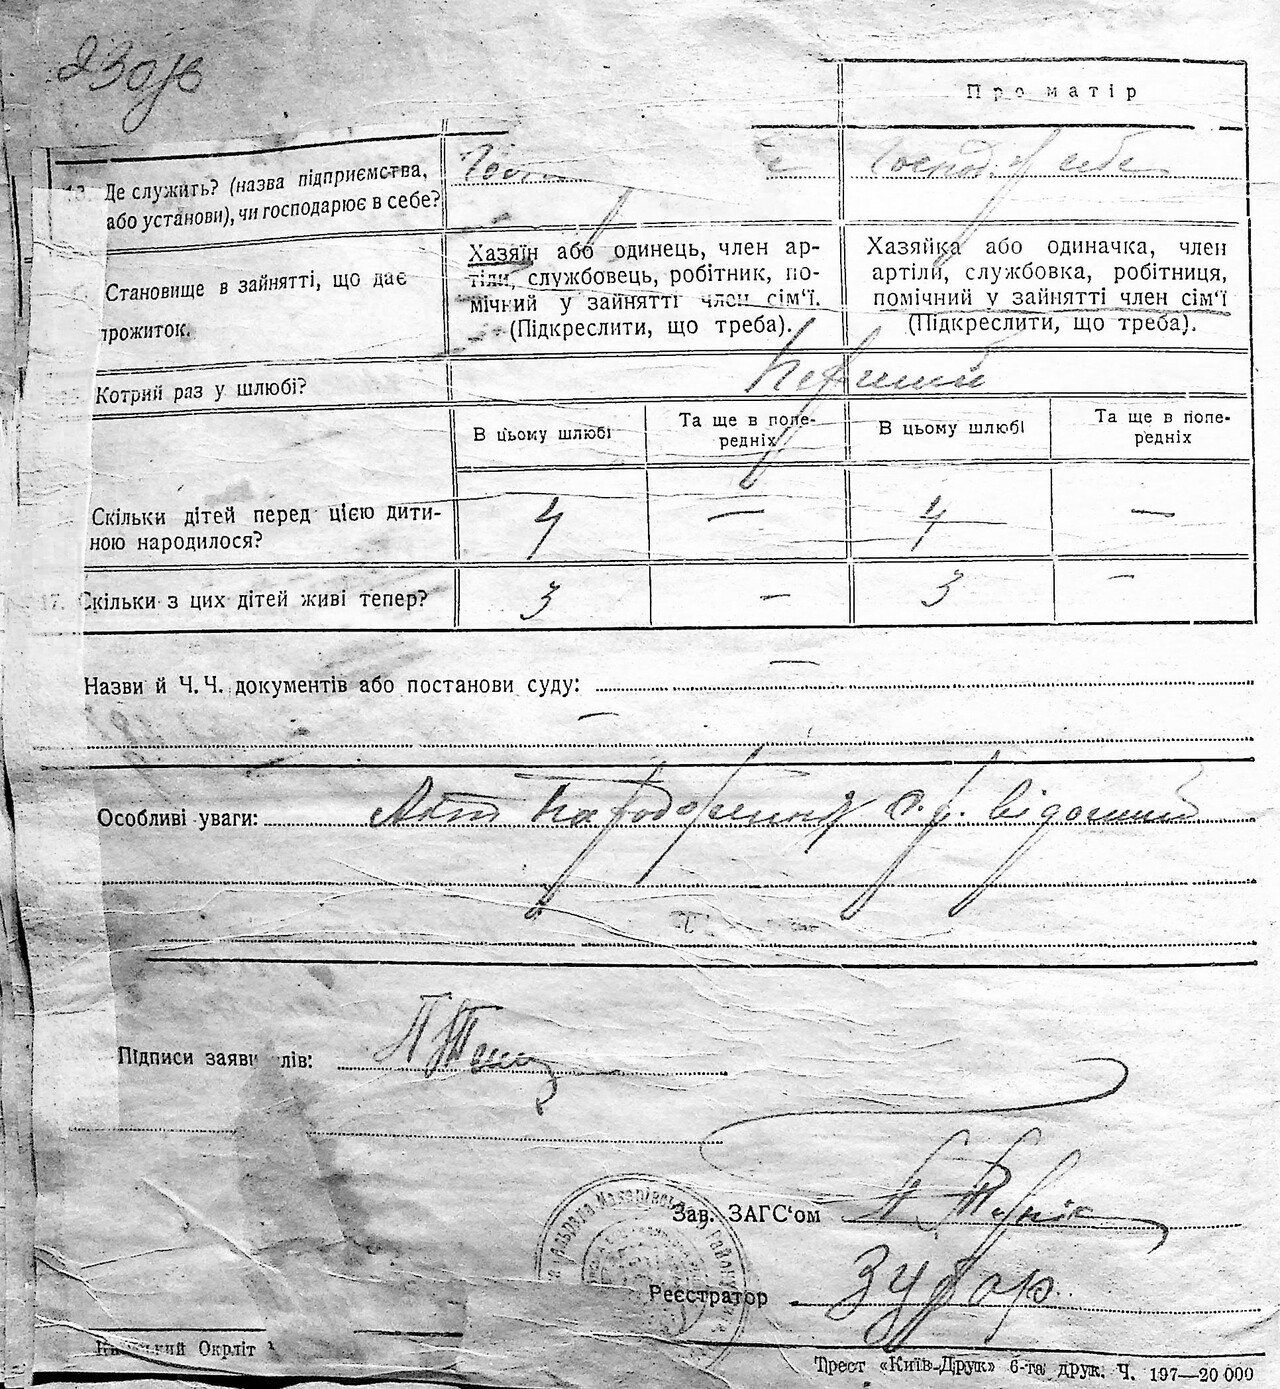 Про матір
13. Де служить? (назва підприємства, або установи), чи господарює в себе?
Господ. у себе
Становище в зайнятті, що дає прожиток.
Хазяїн або одинець, член ар-
тіли, службовець, робітник, по-
мічний у зайнятті член сім'ї.
(Підкреслити, що треба).
Хазяйка або одиначка, член
артіли, службовка, робітниця,
помічний у зайнятті член сім'ї
(Підкреслити, що треба).
Котрий раз у шлюбі?
Перший
В цьому шлюбі
Та ще в попе-
редніх
В цьому шлюбі
Та ще в попе-
редніх
Скільки дітей перед цією дити-
ною народилося?
4 — 4 —
17. Скільки з цих дітей живі тепер?
3 — 3 —
Назви й Ч. Ч. документів або постанови суду: —
—
Особливі уваги: Акт
Підписи заяви лів:
Зав. ЗАГС'ом
Реєстратор Зубар
Київський Окрліт
Трест «Київ-Друк» 6-та друк. Ч. 197—20 000